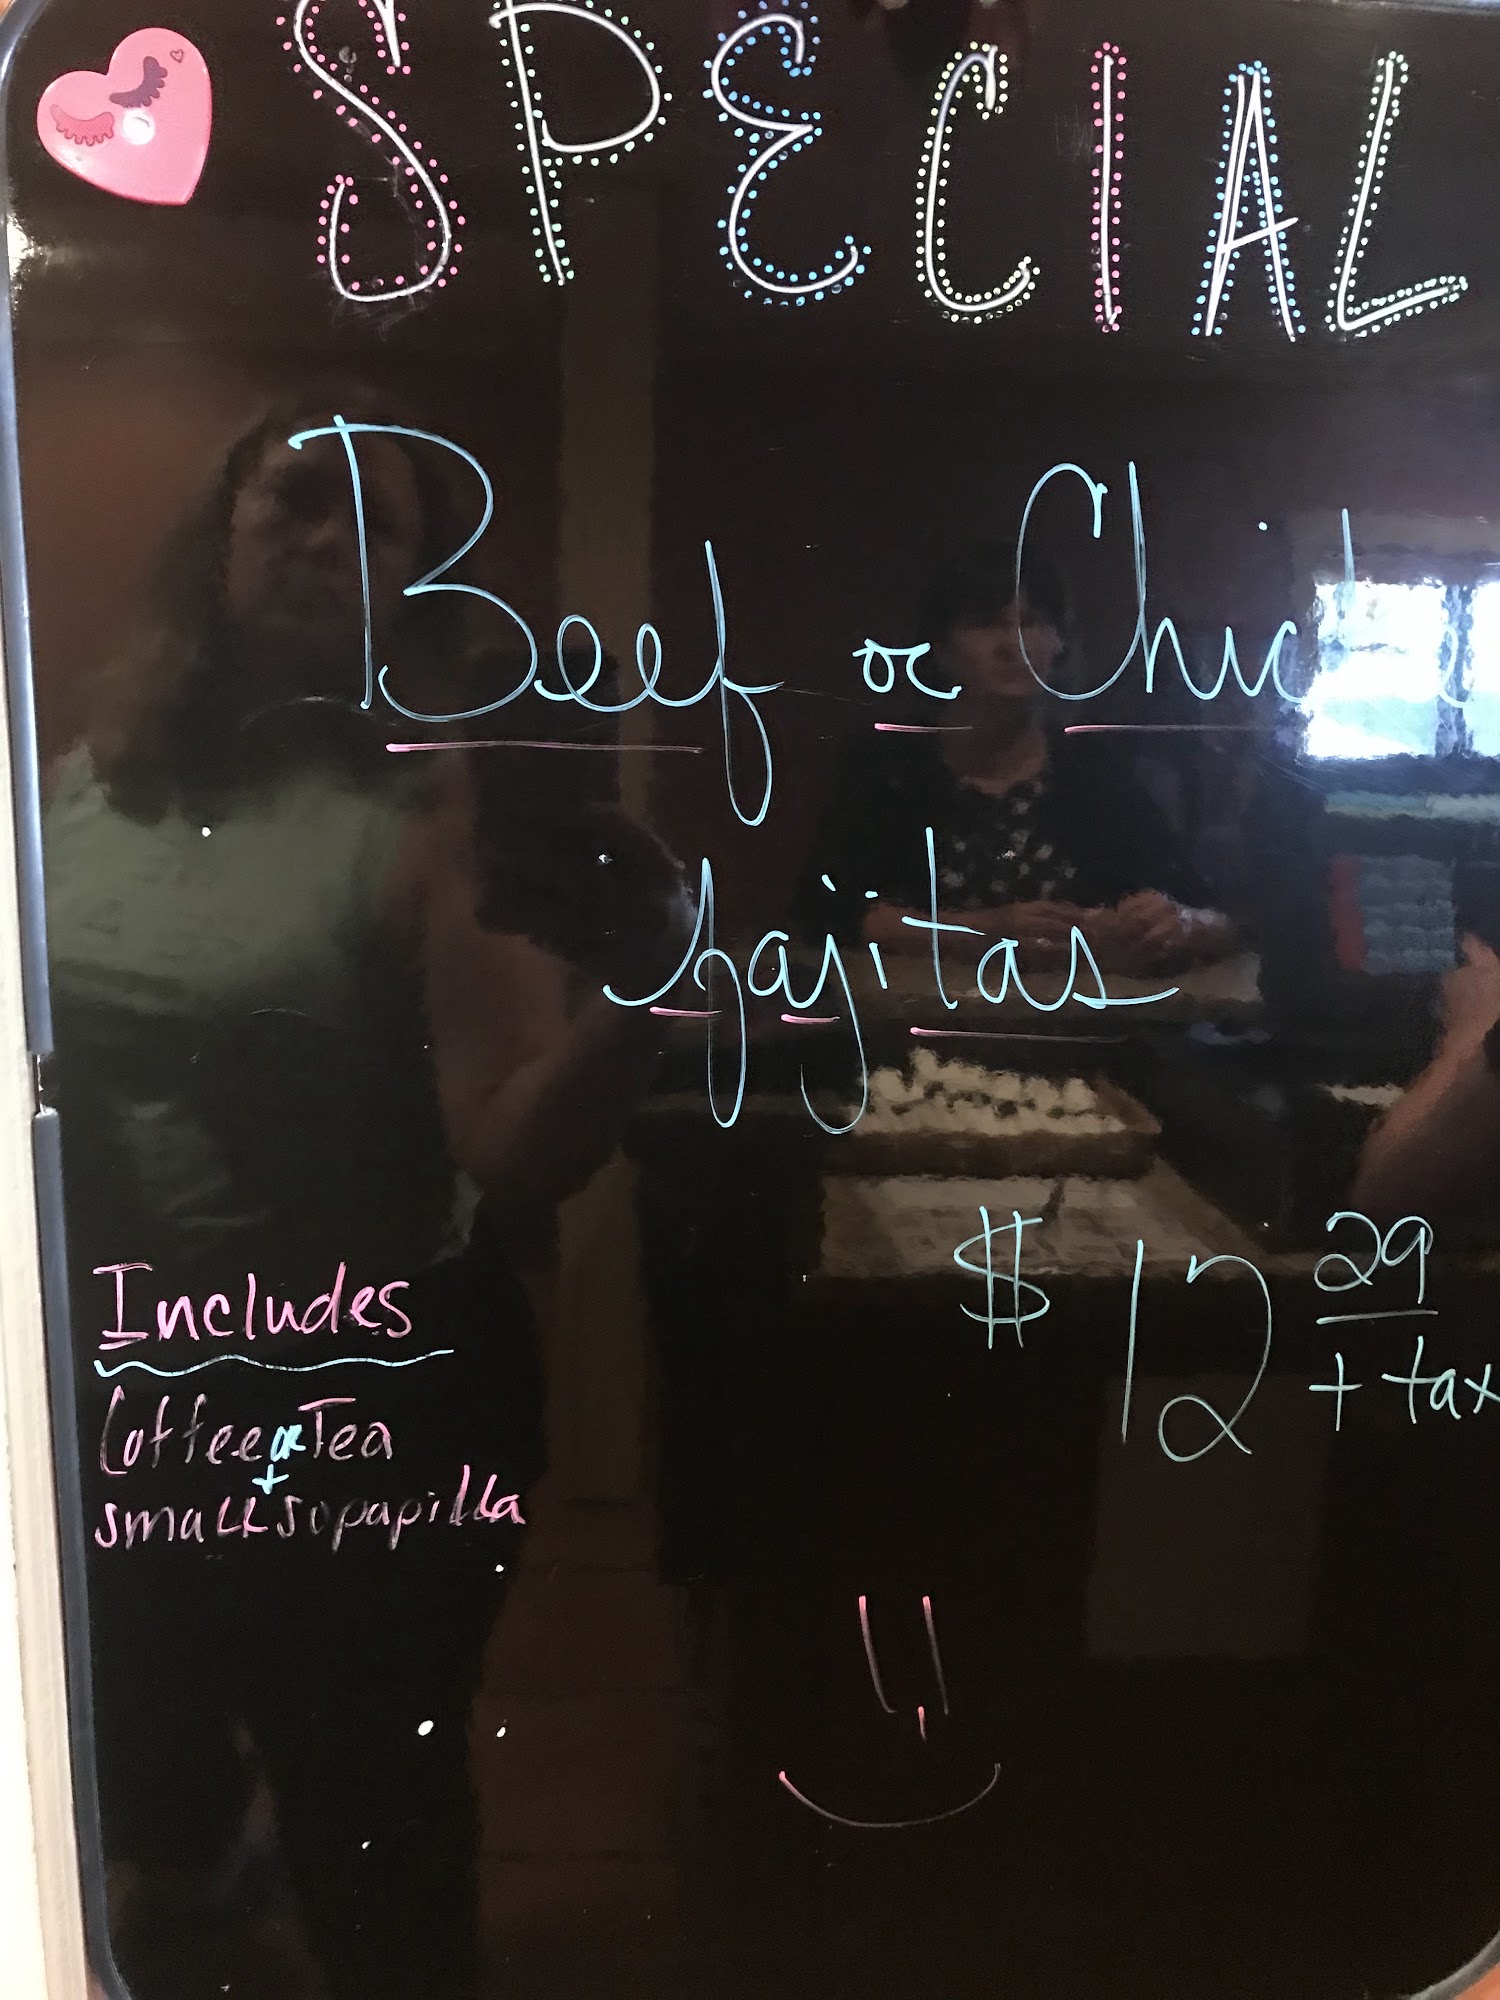 SPECIAL
Beef or Chicke
fajitas
$12 29
+ tax
Includes
Coffee or Tea
+
small sopapilla